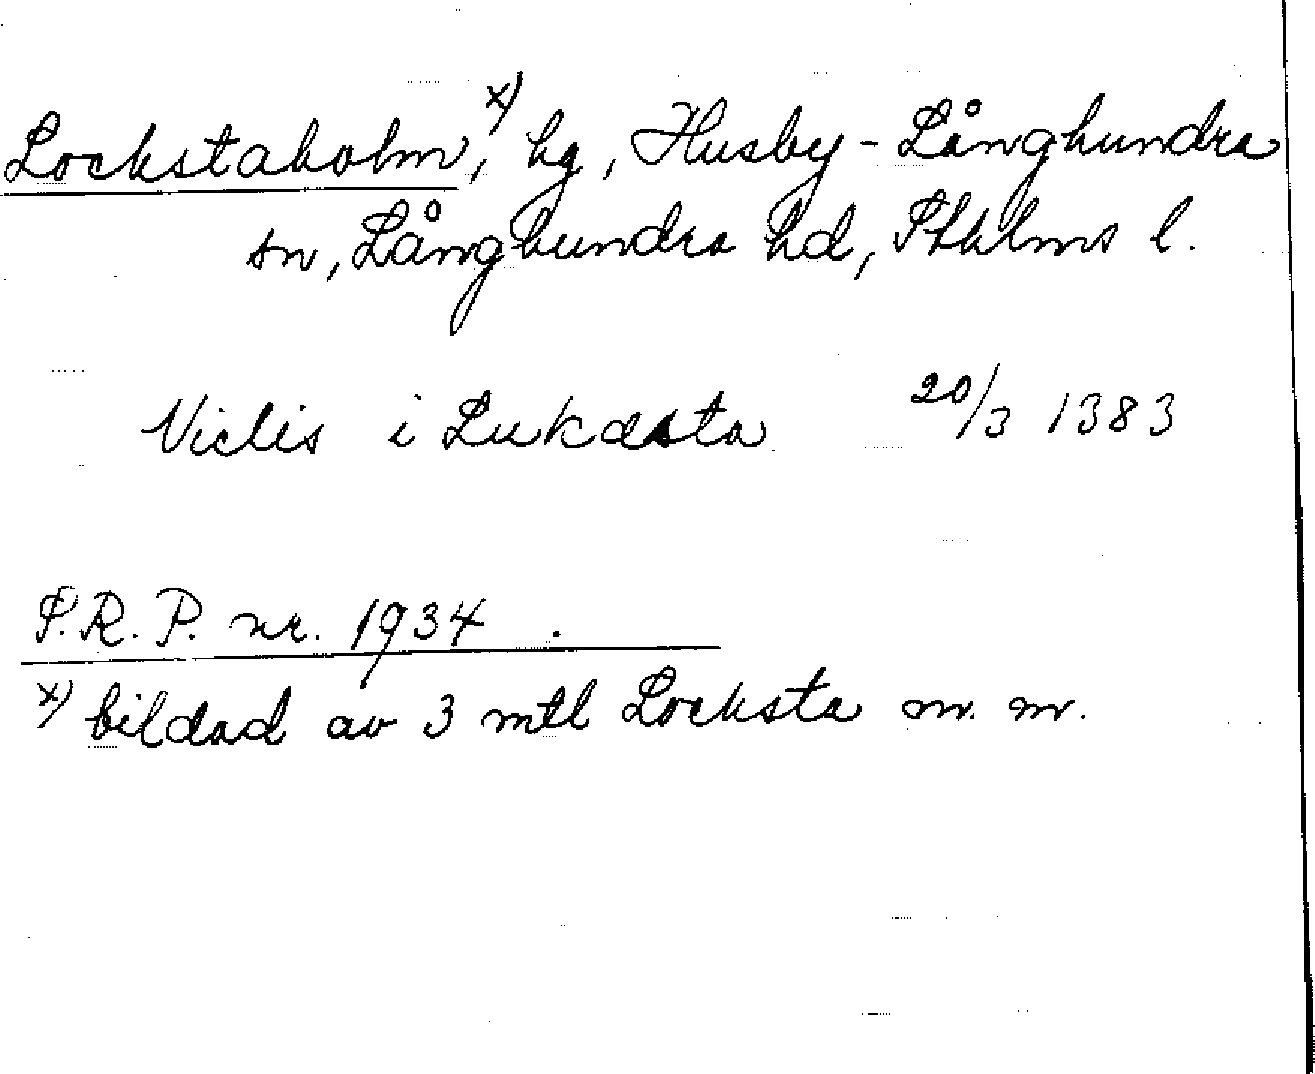 Lockstaholm,ˣ⁾ hg, Husby-Långhundra
sn, Långhundra hd, Sthlms l.
Niclis i Lukæsta 20/3 1383
S.R.P. nr. 1934.
x) bildad av 3 mtl Locksta m. m.